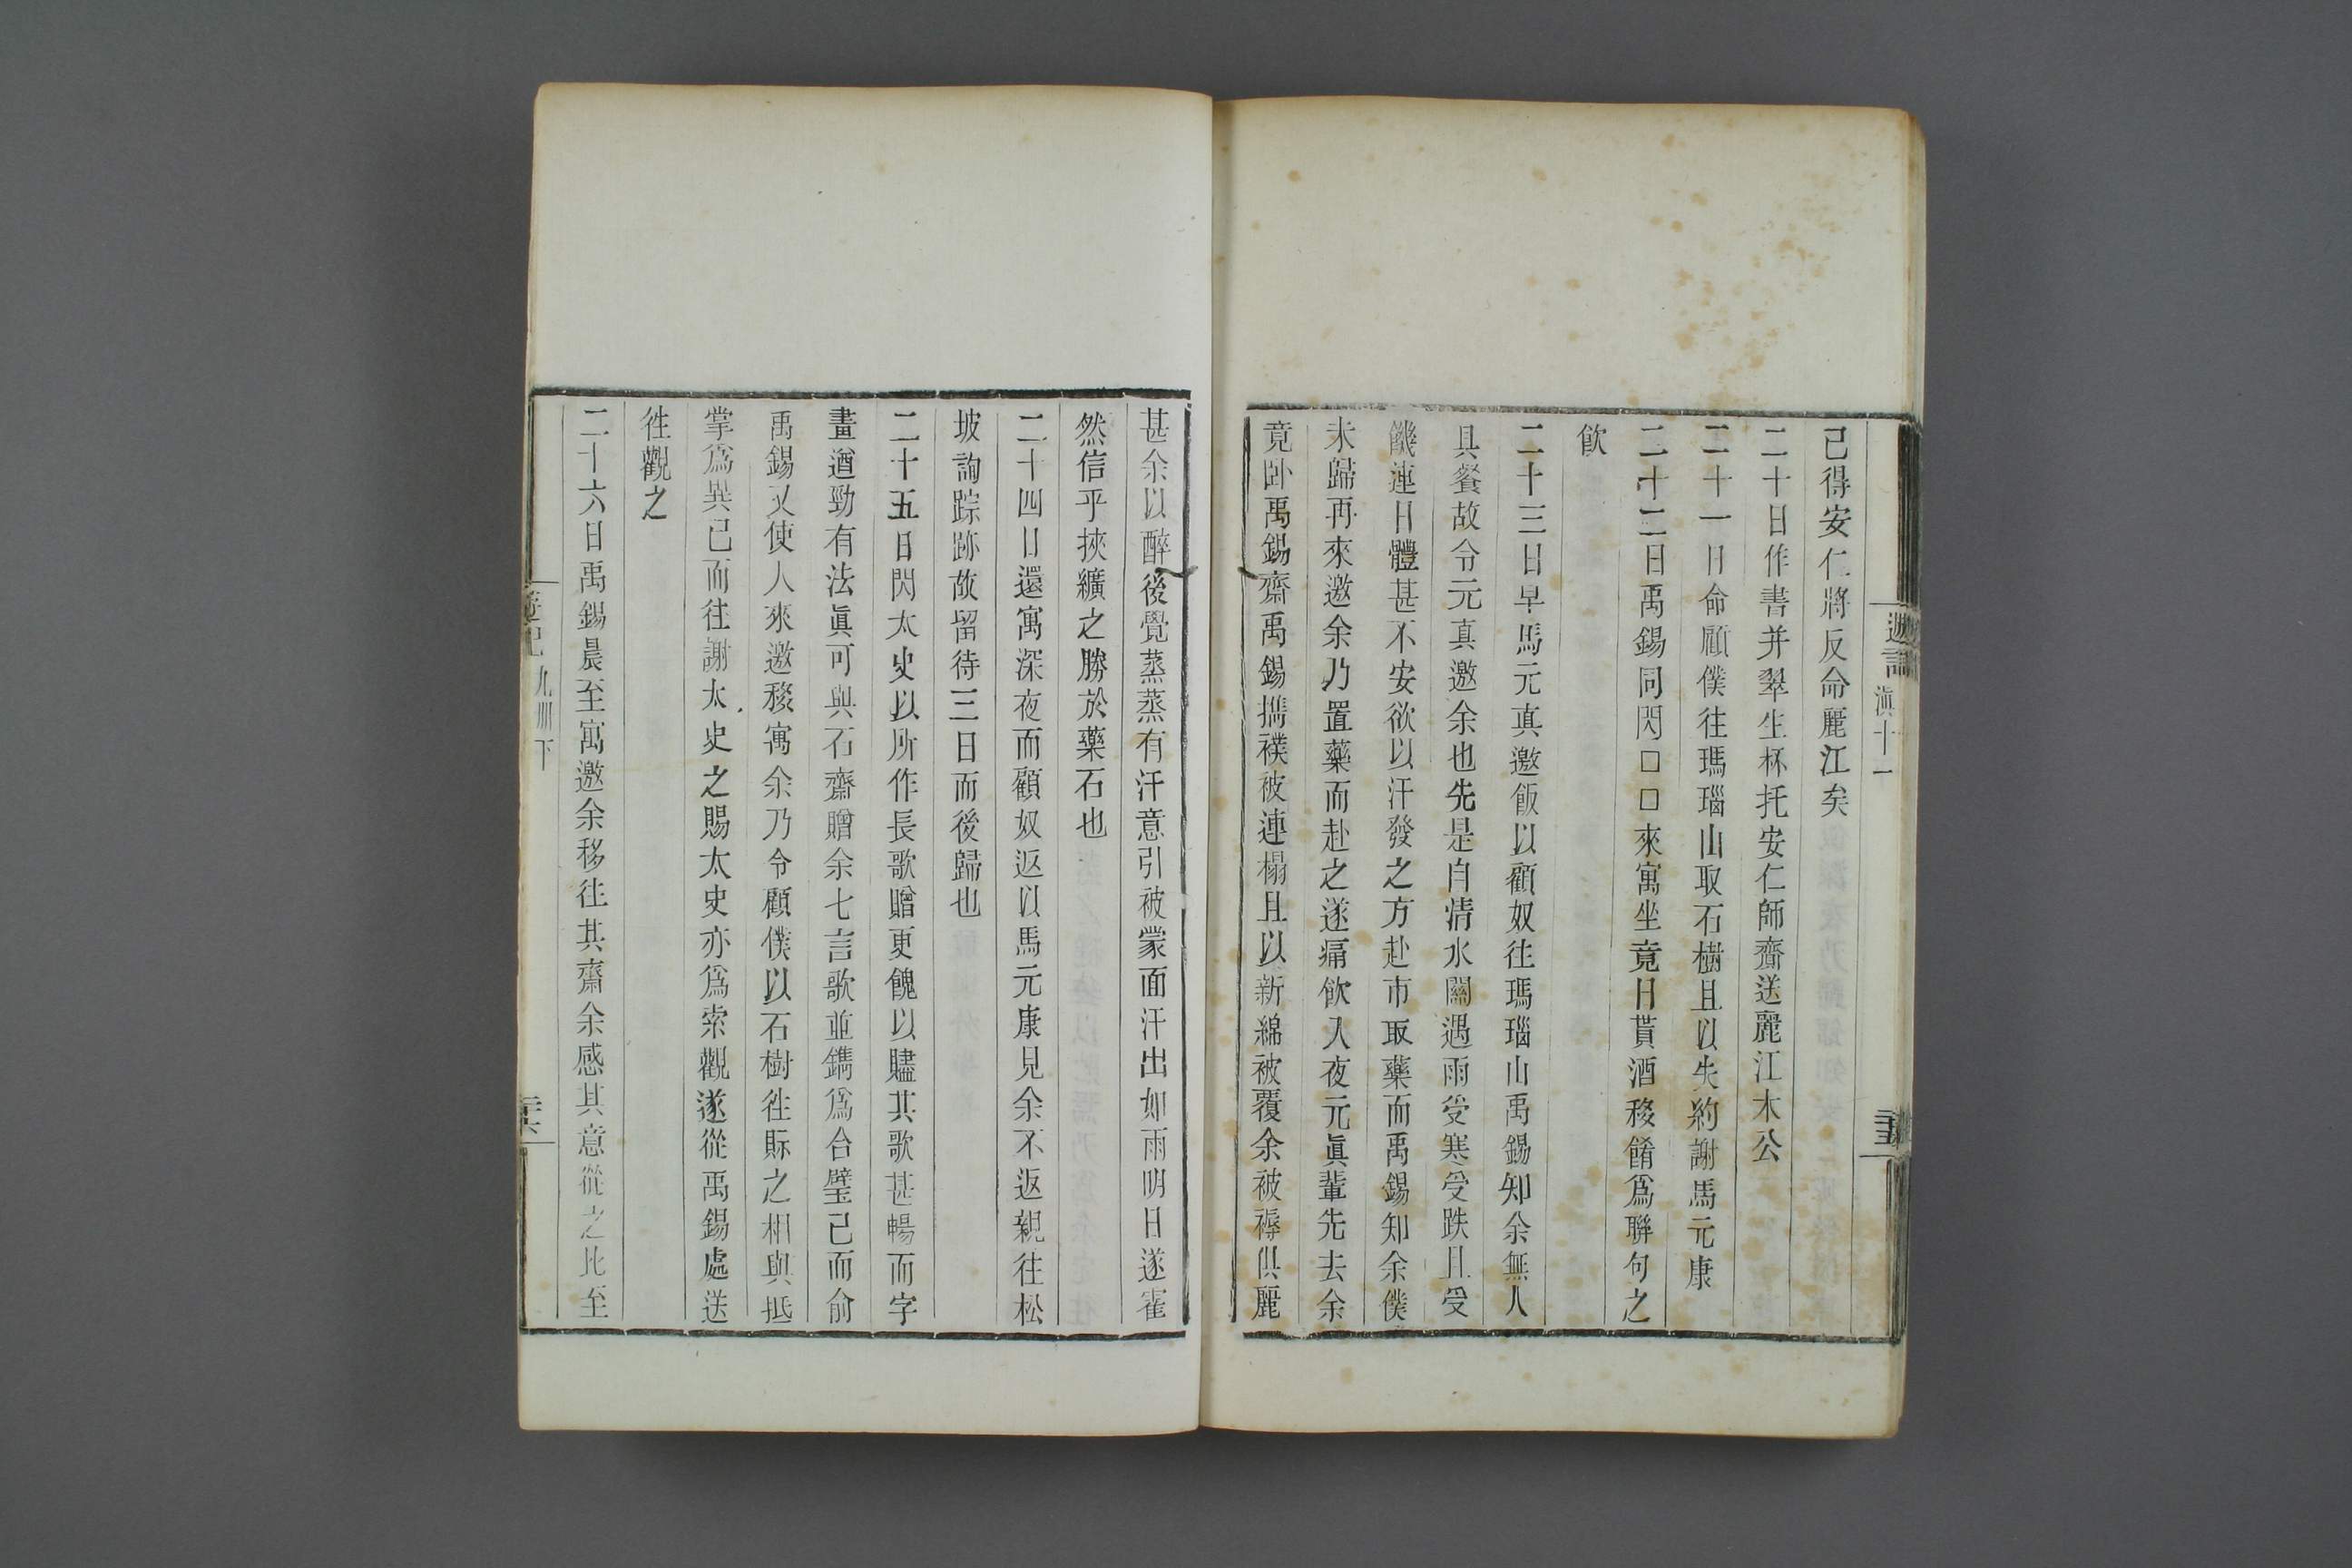 遊記 滇十一
已得安仁將反命麗江矣
二十日作書并翠生杯托安仁師齎送麗江木公
二十一日命顧僕往瑪瑙山取石樹且以失約謝馬元康
二十二日禹錫同閃□□來寓坐竟日貰酒移餚爲聯句之
飲
二十三日早馬元真邀飯以顧奴往瑪瑙山禹錫知余無人
具餐故令元真邀余也先是自清水關遇雨受寒受跌且受
饑連日體甚不安欲以汗發之方赴市取藥而禹錫知余僕
未歸再來邀余乃置藥而赴之遂痛飲入夜元眞輩先去余
竟臥禹錫齋禹錫攜襆被連榻且以新綿被覆余被褥俱麗
甚余以醉後覺蒸蒸有汗意引被蒙面汗出如雨明日遂霍
然信乎挾纊之勝於藥石也
二十四日還寓深夜而顧奴返以馬元康見余不返親往松
坡詢踪跡故留待三日而後歸也
二十五日閃太史以所作長歌贈更餽以贐其歌甚暢而字
畫遒勁有法眞可與石齋贈余七言歌並鐫爲合璧已而俞
禹錫又使人來邀移寓余乃令顧僕以石樹徃賑之相與抵
掌爲異已而往謝太史之賜太史亦爲索觀遂從禹錫處送
徃觀之
二十六日禹錫晨至寓邀余移往其齋余感其意從之比至
九冊下